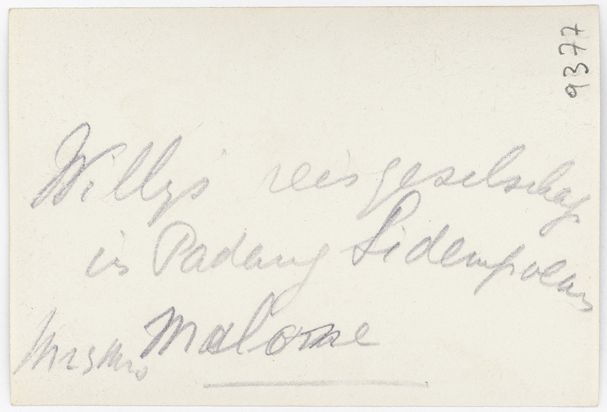 9377
Willys reisgeselschap
in Padang Sidempoean
Malome